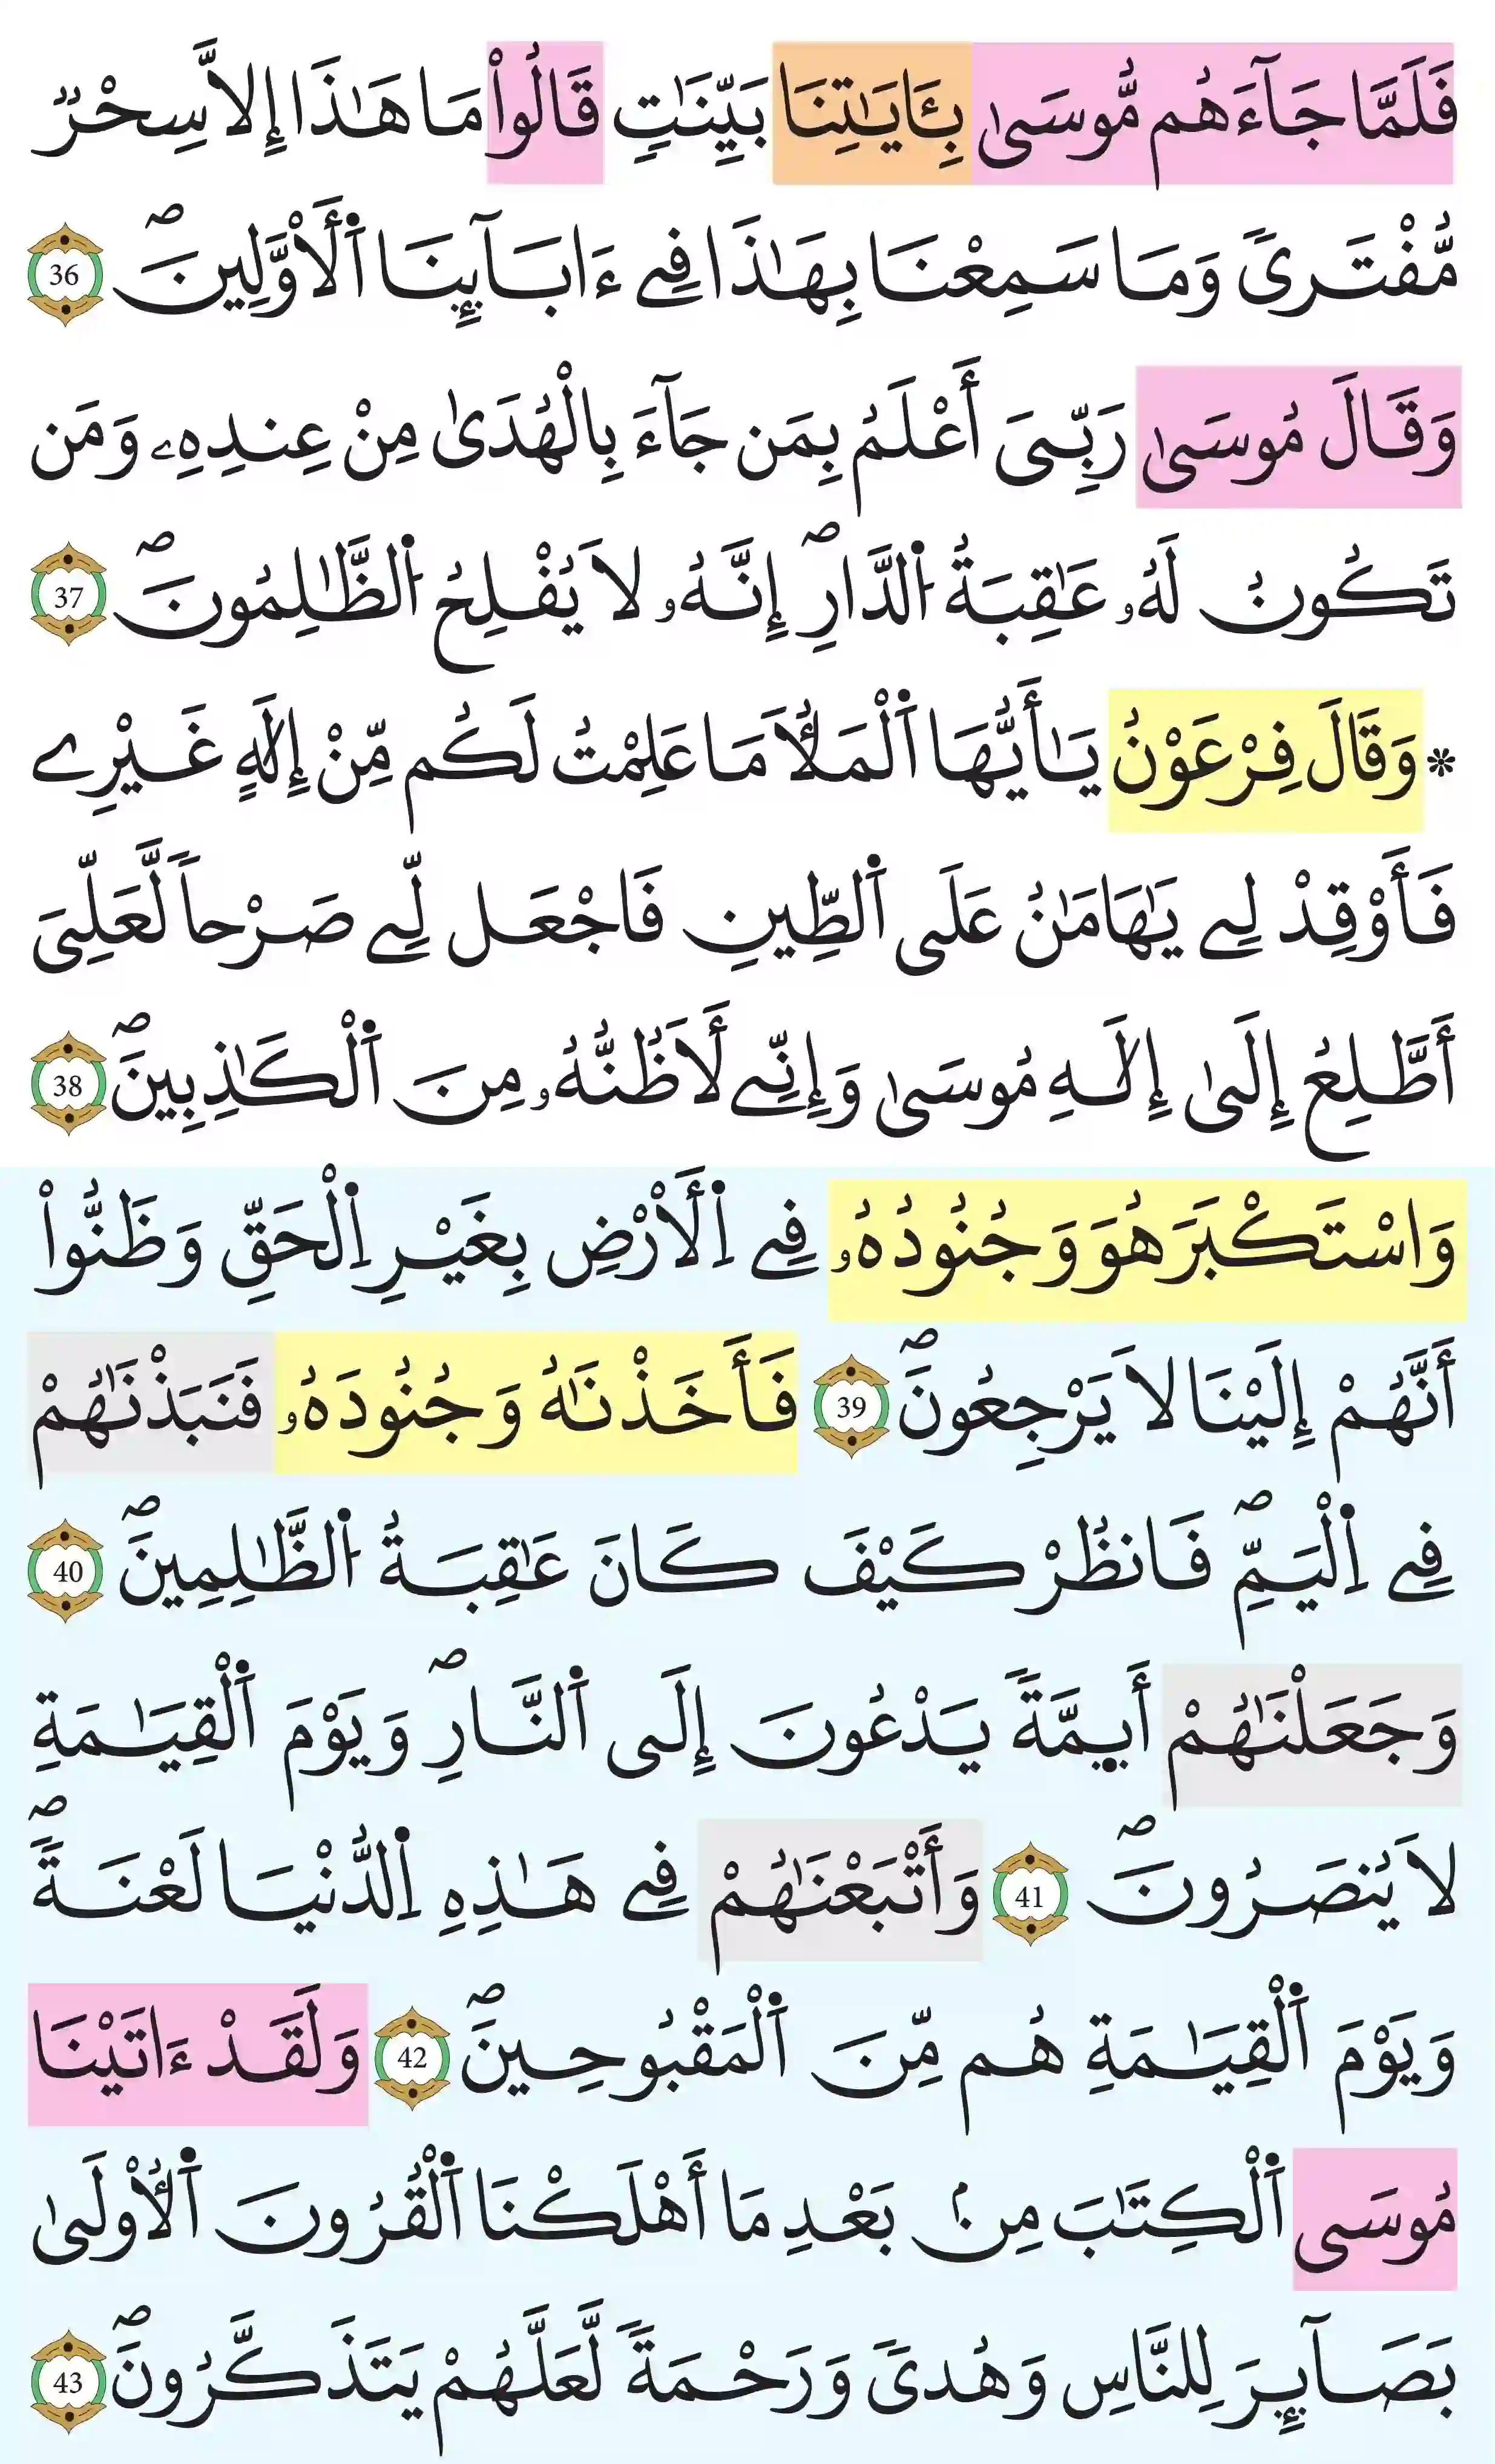 فَلَمَّا جَآءَهُم مُّوسَىٰ بِـَٔايَٰتِنَا بَيِّنَٰتٖ قَالُواْ مَا هَٰذَا إِلَّا سِحْرٞ
مُّفْتَرىٗ وَمَا سَمِعْنَا بِهَٰذَا فِے ءَابَآئِنَا اَ۬لْأَوَّلِينَۖ 36
وَقَالَ مُوسَىٰ رَبِّيَ أَعْلَمُ بِمَن جَآءَ بِالْهُدَىٰ مِنْ عِندِهِۦ وَمَن
تَكُونُ لَهُۥ عَٰقِبَةُ اُ۬لدّ۪ارِۖ إِنَّهُۥ لَا يُفْلِحُ اُ۬لظَّٰلِمُونَۖ 37
* وَقَالَ فِرْعَوْنُ يَٰأَيُّهَا اَ۬لْمَلَأُ مَا عَلِمْتُ لَكُم مِّنْ إِلَٰهٍ غَيْرِے
فَأَوْقِدْ لِے يَٰهَامَٰنُ عَلَى اَ۬لطِّينِ فَاجْعَل لِّے صَرْحاٗ لَّعَلِّيَ
أَطَّلِعُ إِلَىٰ إِلَٰهِ مُوسَىٰ وَإِنِّے لَأَظُنُّهُۥ مِنَ اَ۬لْكَٰذِبِينَۖ 38
وَاسْتَكْبَرَ هُوَ وَجُنُودُهُۥ فِے اِ۬لْأَرْضِ بِغَيْرِ اِ۬لْحَقِّ وَظَنُّواْ
أَنَّهُمْ إِلَيْنَا لَا يَرْجِعُونَۖ 39 فَأَخَذْنَٰهُ وَجُنُودَهُۥ فَنَبَذْنَٰهُمْ
فِے اِ۬لْيَمِّۖ فَانظُرْ كَيْفَ كَانَ عَٰقِبَةُ اُ۬لظَّٰلِمِينَۖ 40
وَجَعَلْنَٰهُمْ أَيِمَّةٗ يَدْعُونَ إِلَى اَ۬لنّ۪ارِۖ وَيَوْمَ اَ۬لْقِيَٰمَةِ
لَا يُنصَرُونَۖ 41 وَأَتْبَعْنَٰهُمْ فِے هَٰذِهِ اِ۬لدُّنْيَا لَعْنَةٗۖ
وَيَوْمَ اَ۬لْقِيَٰمَةِ هُم مِّنَ اَ۬لْمَقْبُوحِينَۖ 42 وَلَقَدْ ءَاتَيْنَا
مُوسَى اَ۬لْكِتَٰبَ مِنۢ بَعْدِ مَا أَهْلَكْنَا اَ۬لْقُرُونَ اَ۬لْأُولَىٰ
بَصَآئِرَ لِلنَّاسِ وَهُدىٗ وَرَحْمَةٗ لَّعَلَّهُمْ يَتَذَكَّرُونَۖ 43